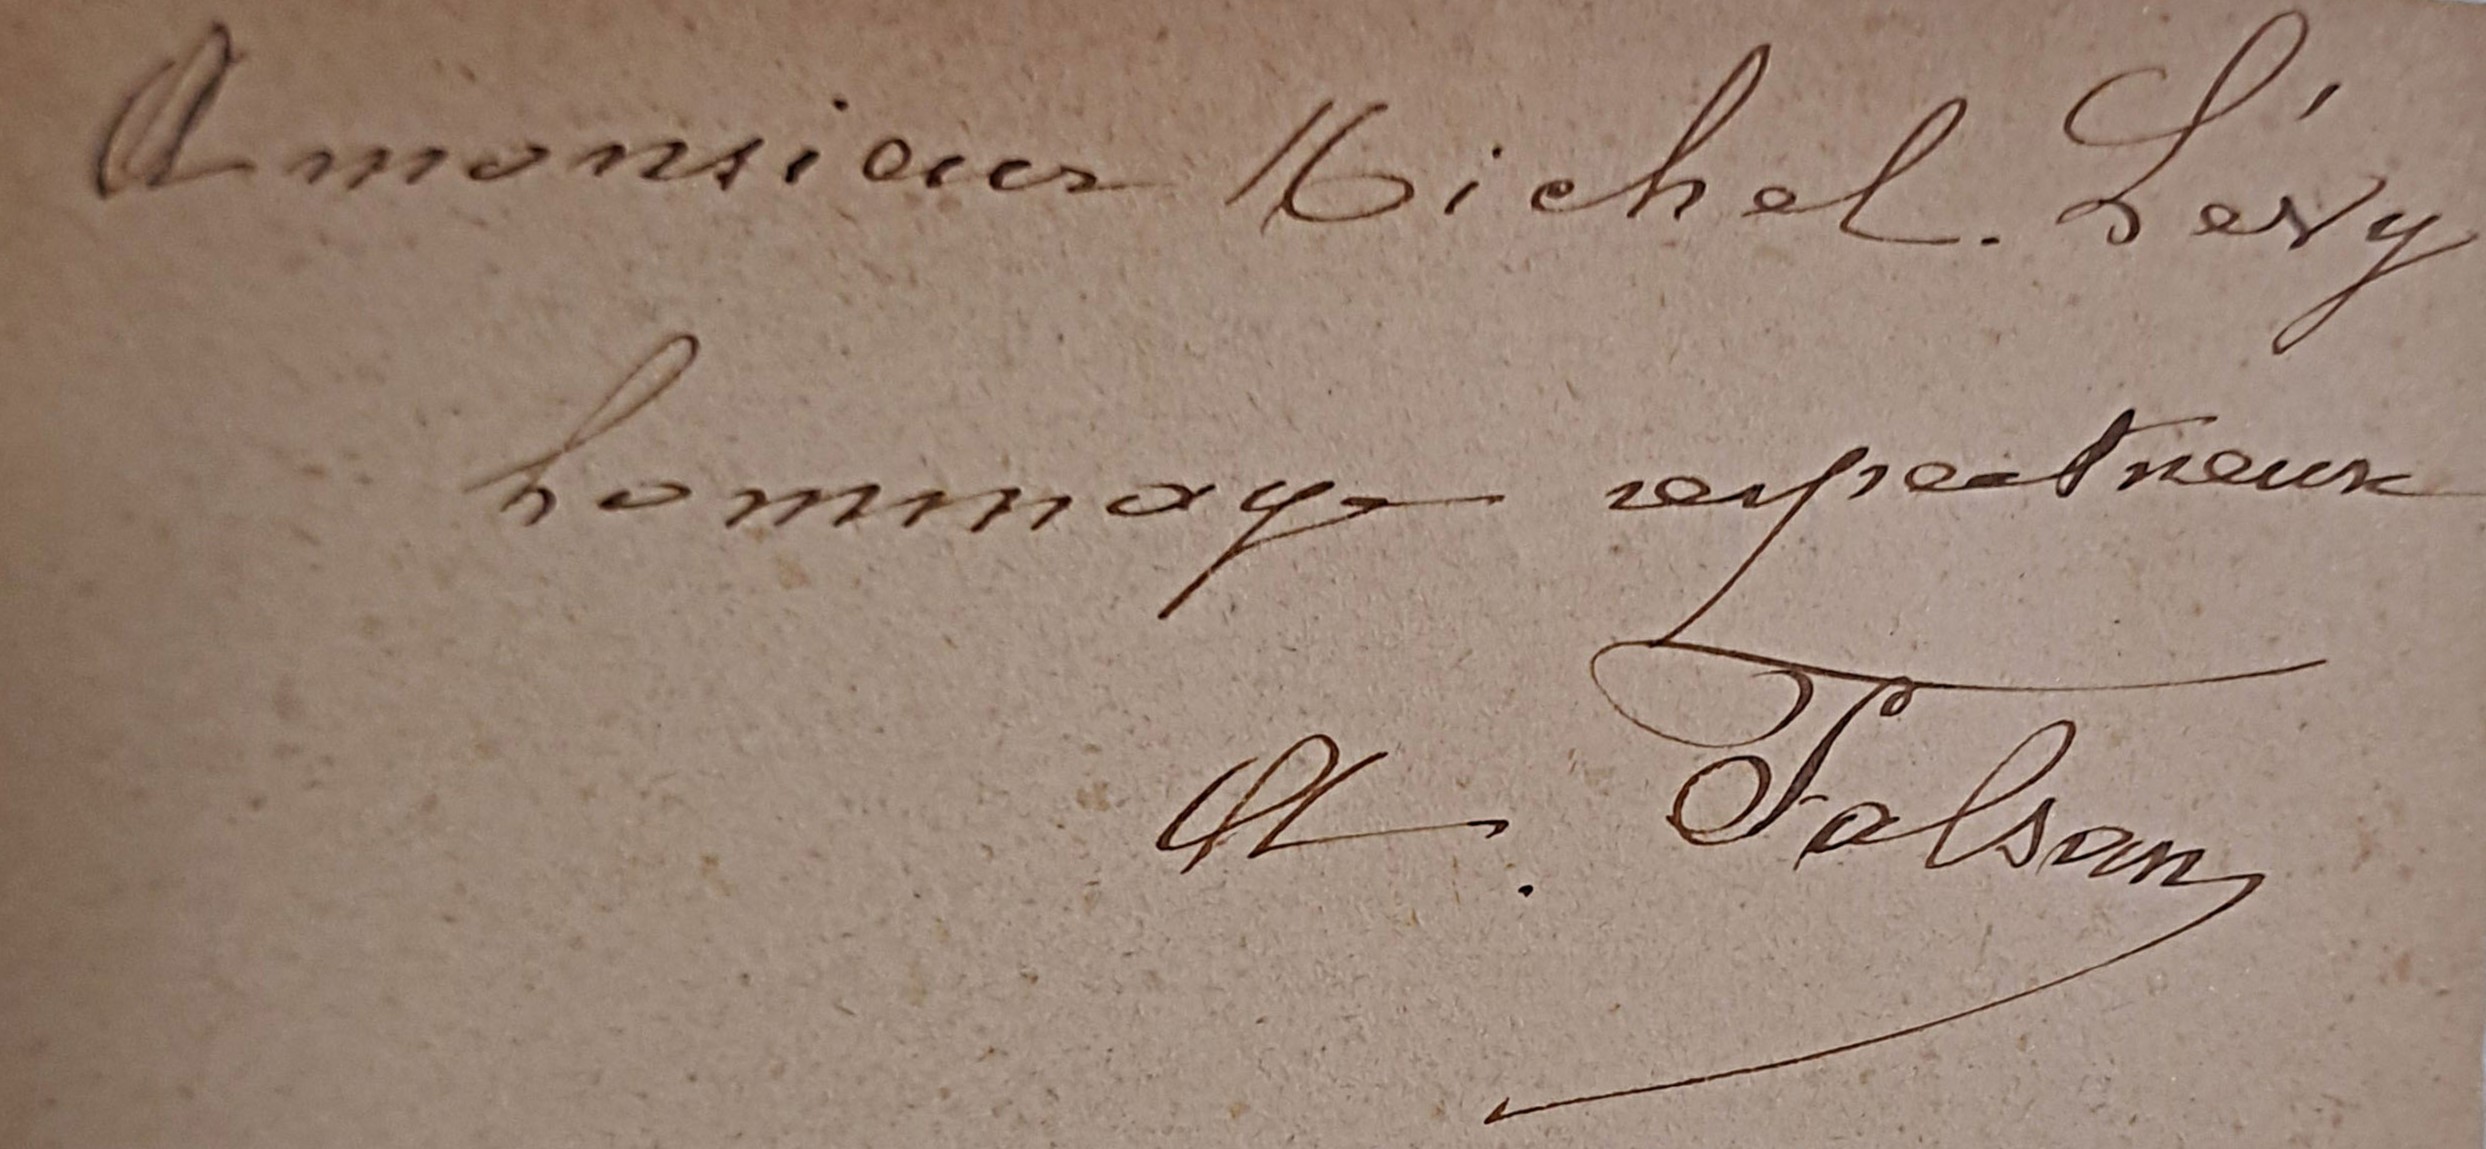 A monsieur Michel. Lévy
hommage respectueux
A. Falsan